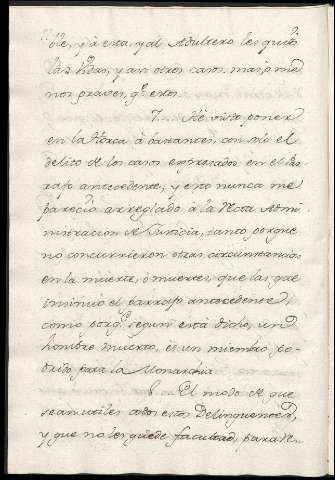 ole, y à esta, y al Adultero les quitò
las Vidas, y an otros, casos, mas, ò me
nos graves, q.e estos.
7... Hè visto poner
en la Horca à bastantes, con solo el
delito de los casos expresados en el Par-
rafo antecedente; y esto nunca me
pareciò arreglado à la Recta Admi-
nistracion de Justicia, tanto porque
no concurrieron otras circunstancias
en la muerte, ò muertes, que las que
insinùo el parrafo antecedente;
como porq.e segun està dicho, un
hombre muerto, es un miembro po-
drido para la Monarchia
8... El modo de que
sean utiles estos Delinquentes,
y que no les quède facultad, para de-